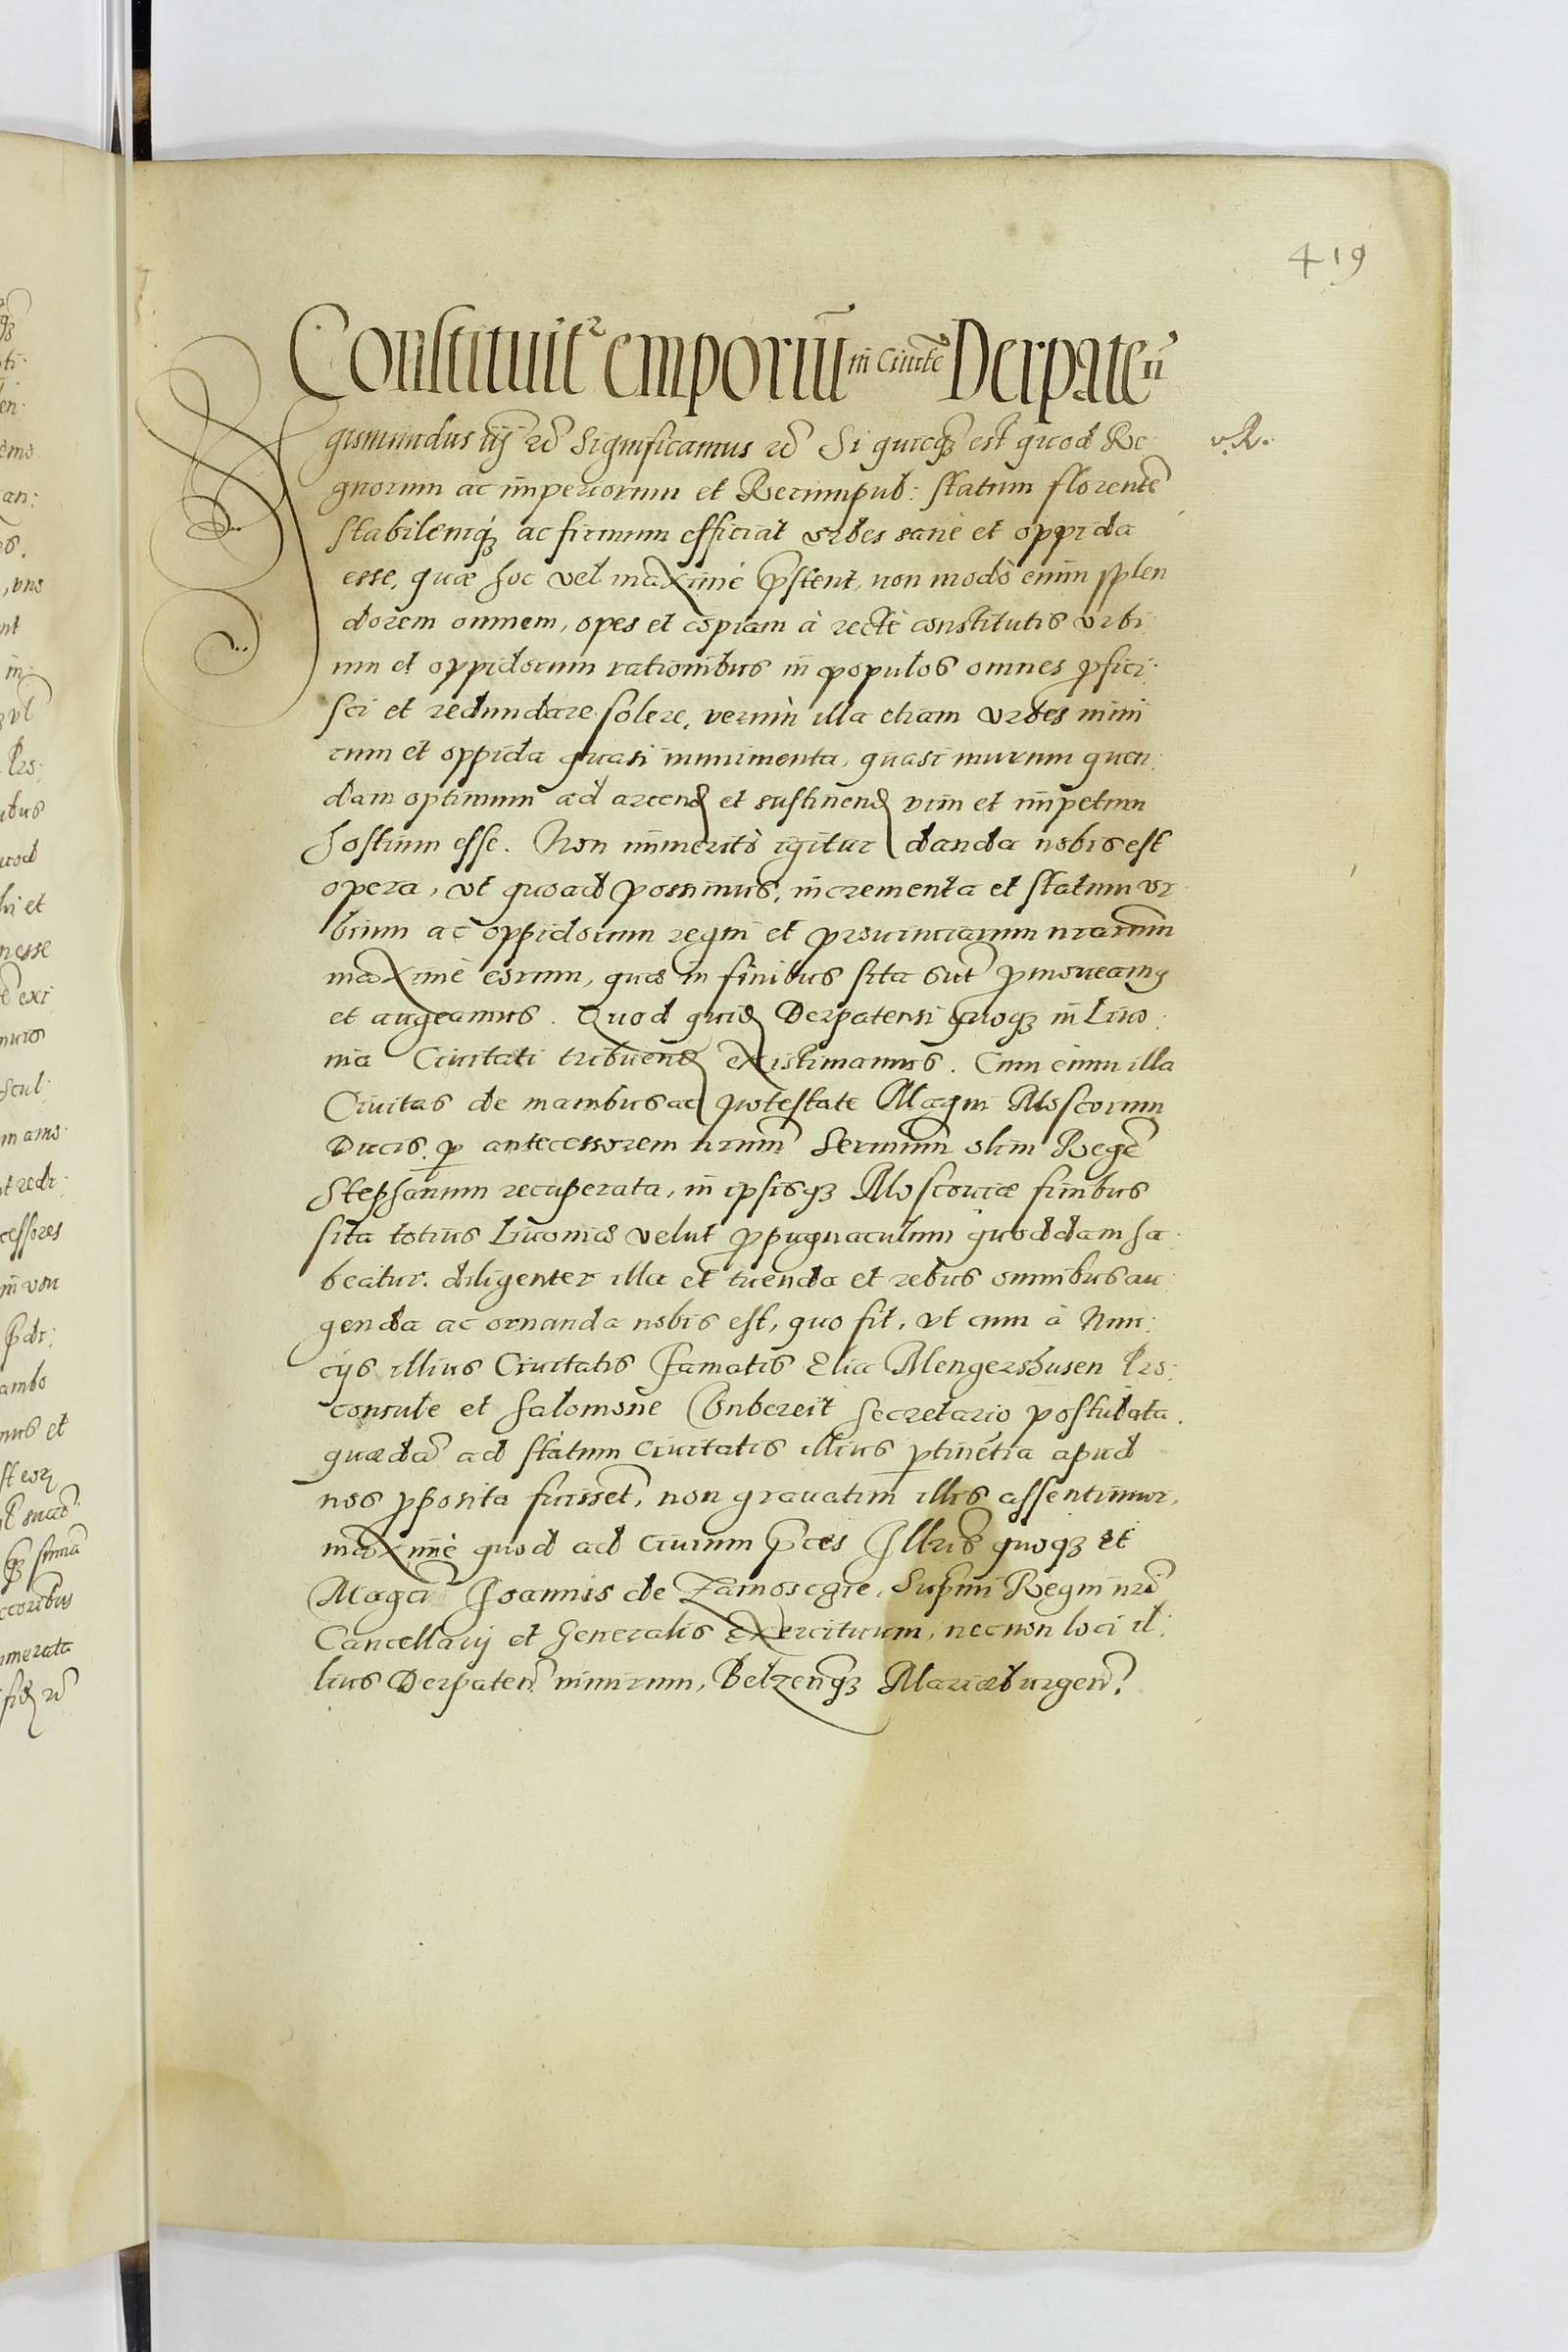 419
Constituit² emporiū in Ciuitẽ Derpateñ
v. R.
Sigismundus iij ꝛc̃ Significamus ꝛc̃ Si quicqꝫ est quod Re¬
gnorum ac imperiorum et Rerumpub: statum florentẽ
stabilemqꝫ ac firmum efficiat vrbes sanè et oppida
esse, quæ hoc vel maximè p̃stent, non modò enim splen
dorem omnem, opes et copiam à rectè constitutis vrbi
um et oppidorum rationibus in populos omnes ꝓfici¬
sci et redundare solere, verùm illa etiam vrbes nimi
rum et oppida quasi munimenta, quasi murum quen¬
dam optimum ad arcend et sustinend vim et impetum
hostium esse. Non immeritò igitur danda nobis est
opera, vt quoad possimus, incrementa et statum vr¬
bium ac oppidorum regni et prouinciarum nr̃arum
maximè eorum, quæ in finibus sita sut̃ ꝓmoueamꝰ
et augeamus. Quod quid Derpatensi quoqꝫ in Liuo¬
nia Ciuitati tribuend existimamus. Cum enim illa
Ciuitas de manibus ac potestate Magni Moscorum
Ducis, ꝑ antecessorem nr̃um Sermum̃ olim Regẽ
Stephanum recuperata, in ipsisqꝫ Moscouiæ finibus
sita totius Liuoniæ velut ꝓpugnaculum quoddam ha¬
beatur. diligenter illa et tuenda et rebus omnibus au¬
genda ac ornanda nobis est, quo fit, vt cum à Nun¬
cijs illius Ciuitatis Famatis Elia Mengershusen Pro¬
consule et Salomone Vnbereit Secretario postulata
quædã ad statum Ciuitatis illius ꝑtinẽtia apud
nos ꝓposita fuissẽt, non grauatim illis assentimur,
maximè quod ad ciuium p̃ces Illris̃ quoqꝫ et
Magci̇̃ Joannis de Zamoscgie, Sup̃mi Regni nr̃i
Cancellarij et Generalis Exercituum, necnon loci il¬
lius Derpateñ nimirum, Belzenq̃ꝫ Mariæburgeñ.